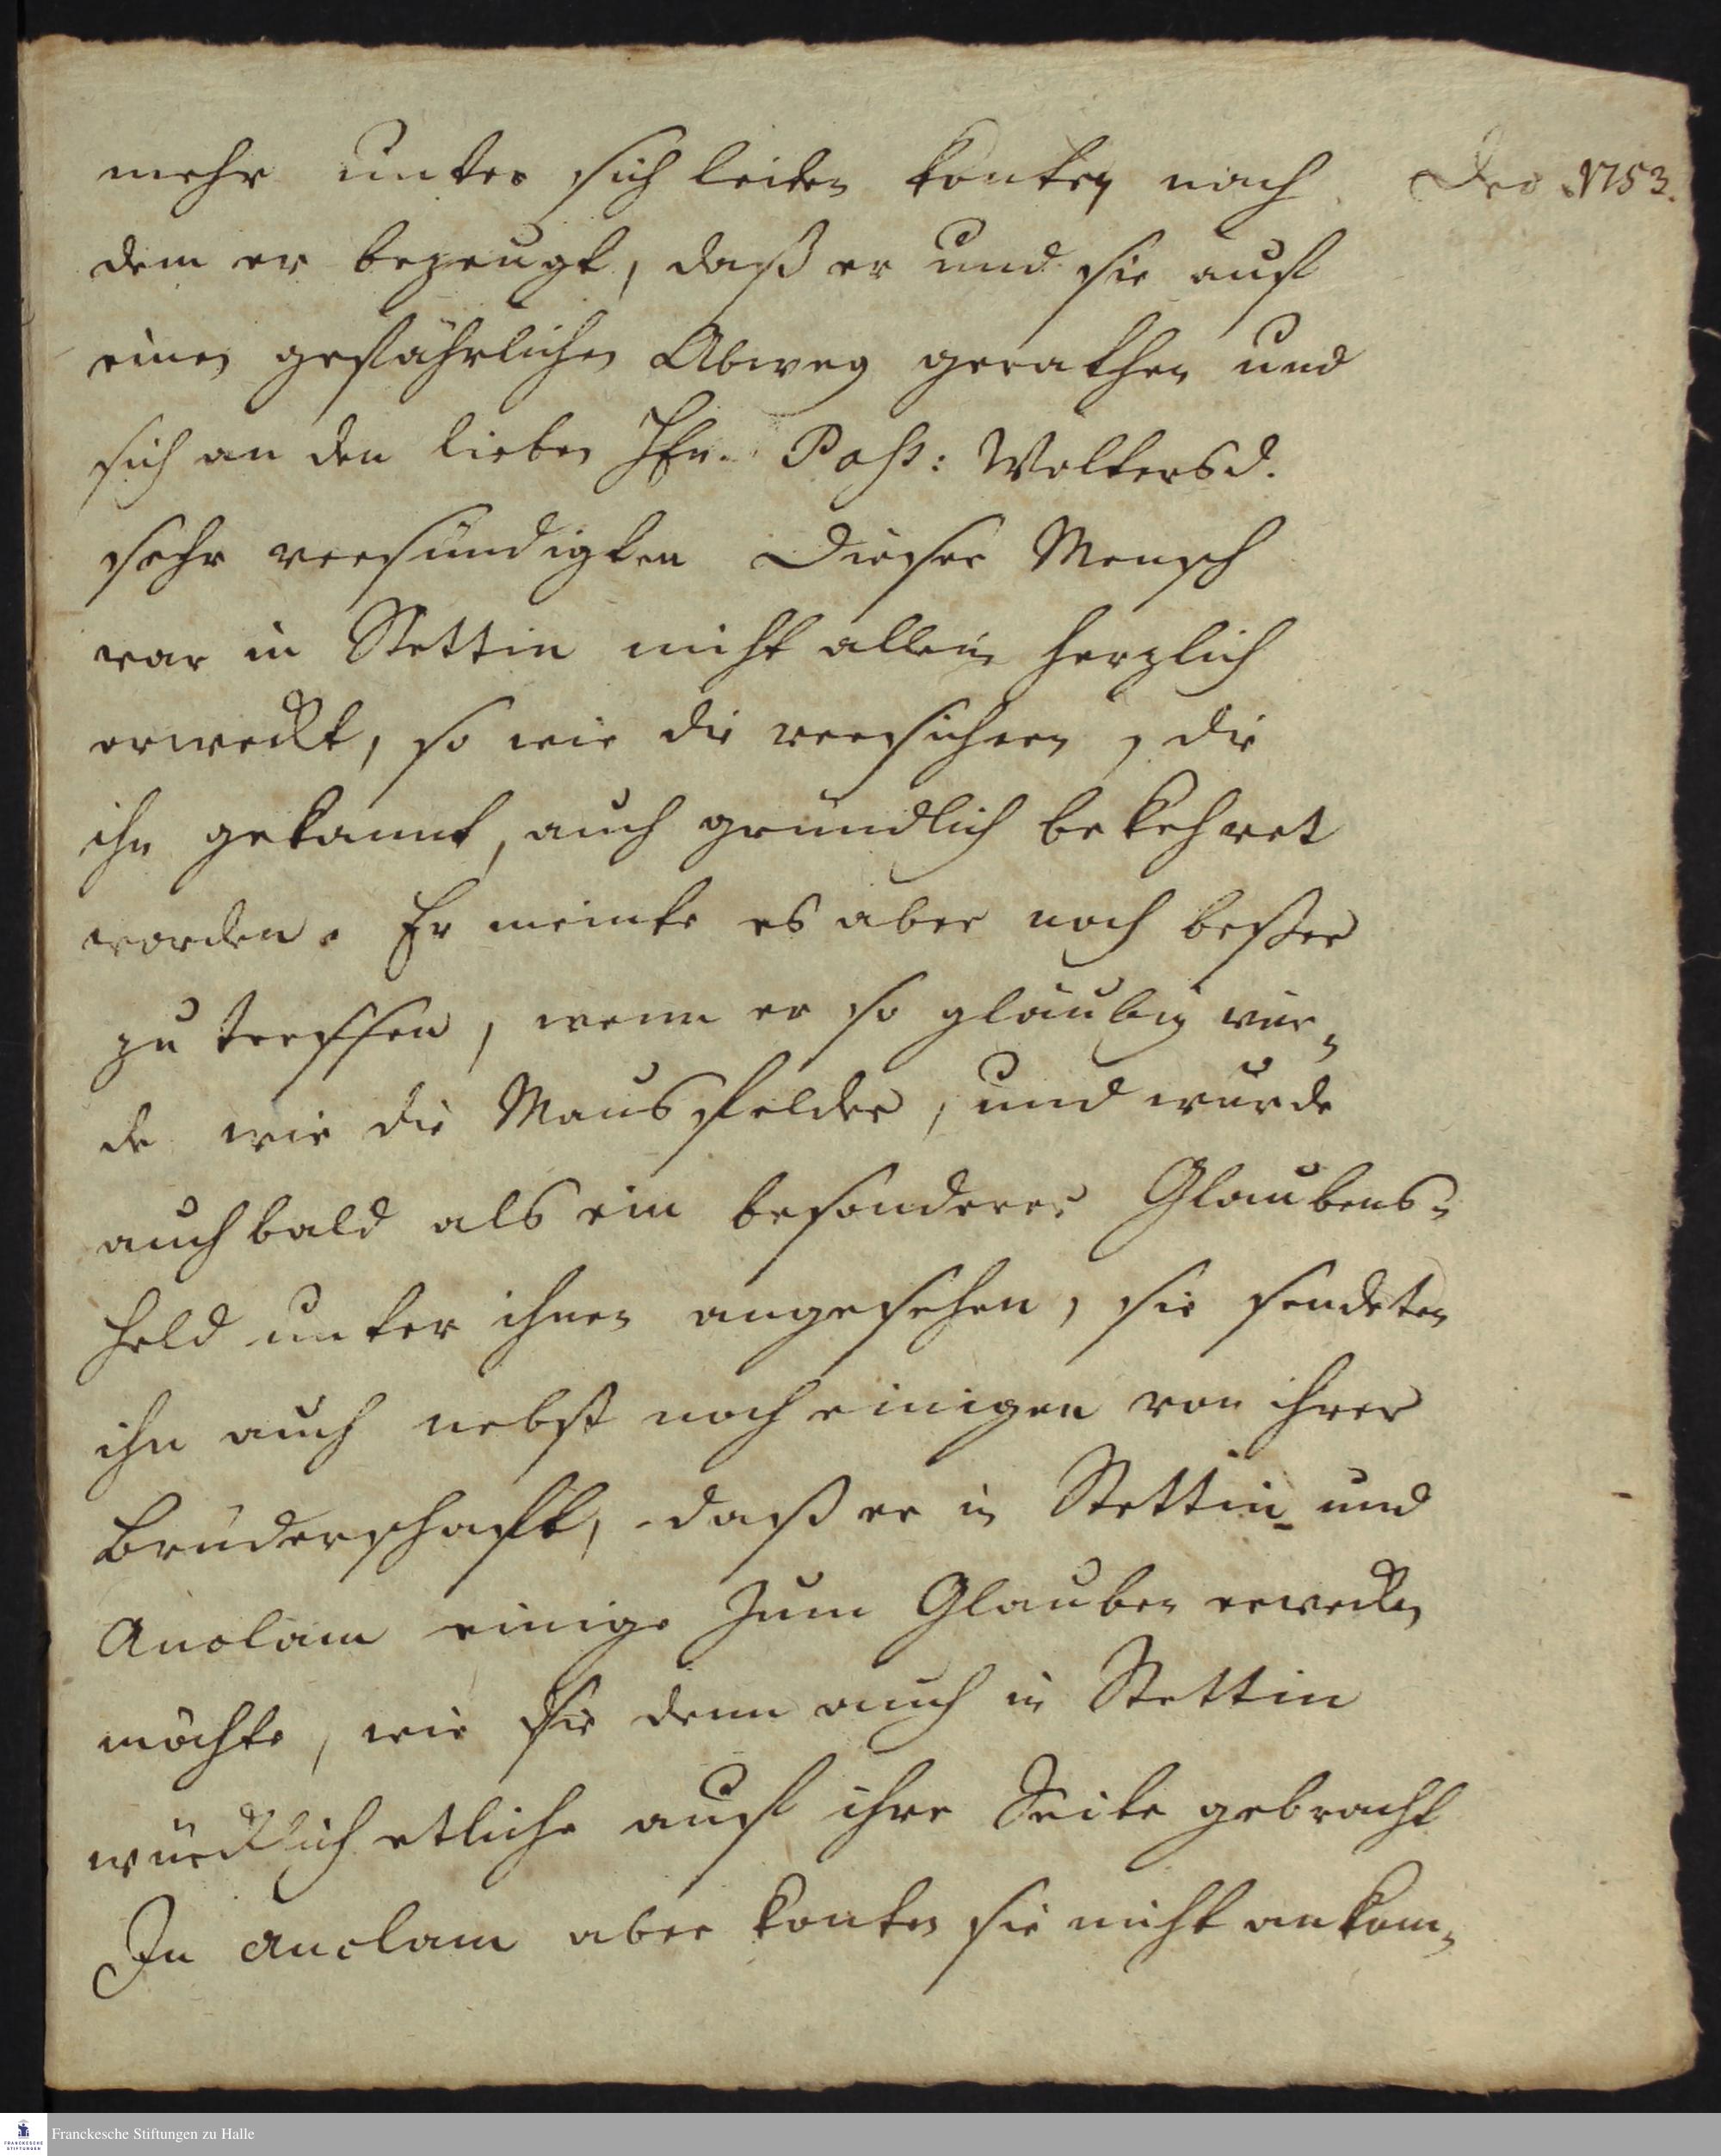 mehr unter sich leiden konten nach
Dec. 1753.
dem er bezeugt, daß er und sie auf
einen gefährlichen Abweg gerathen und
sich an den lieben Hrn. Past: Woltersd.
sehr versündigten Dieser Mensch
war in Stettin nicht allein herzlich
erweckt, so wie die versichern, die
ihn gekannt, auch gründlich bekehret
worden. Er meinte es aber noch beßer
zu treffen, wenn er so gläubig wür-
de wie die Mansfelder, und wurde
auch bald als ein besonderer Glaubens-
held unter ihnen angesehen, sie sendeten
ihn auch nebst noch einigen von ihrer
Brüderschafft, daß er in Stettin und
Anclam einige zum Glauben erwecken
möchte, wie sie denn auch in Stettin
würcklich etliche auf ihre Seite gebracht
In Anclam aber konten sie nicht ankom-
Franckesche Stiftungen zu Halle
FRANCKESCHE
STIFTUNGEN